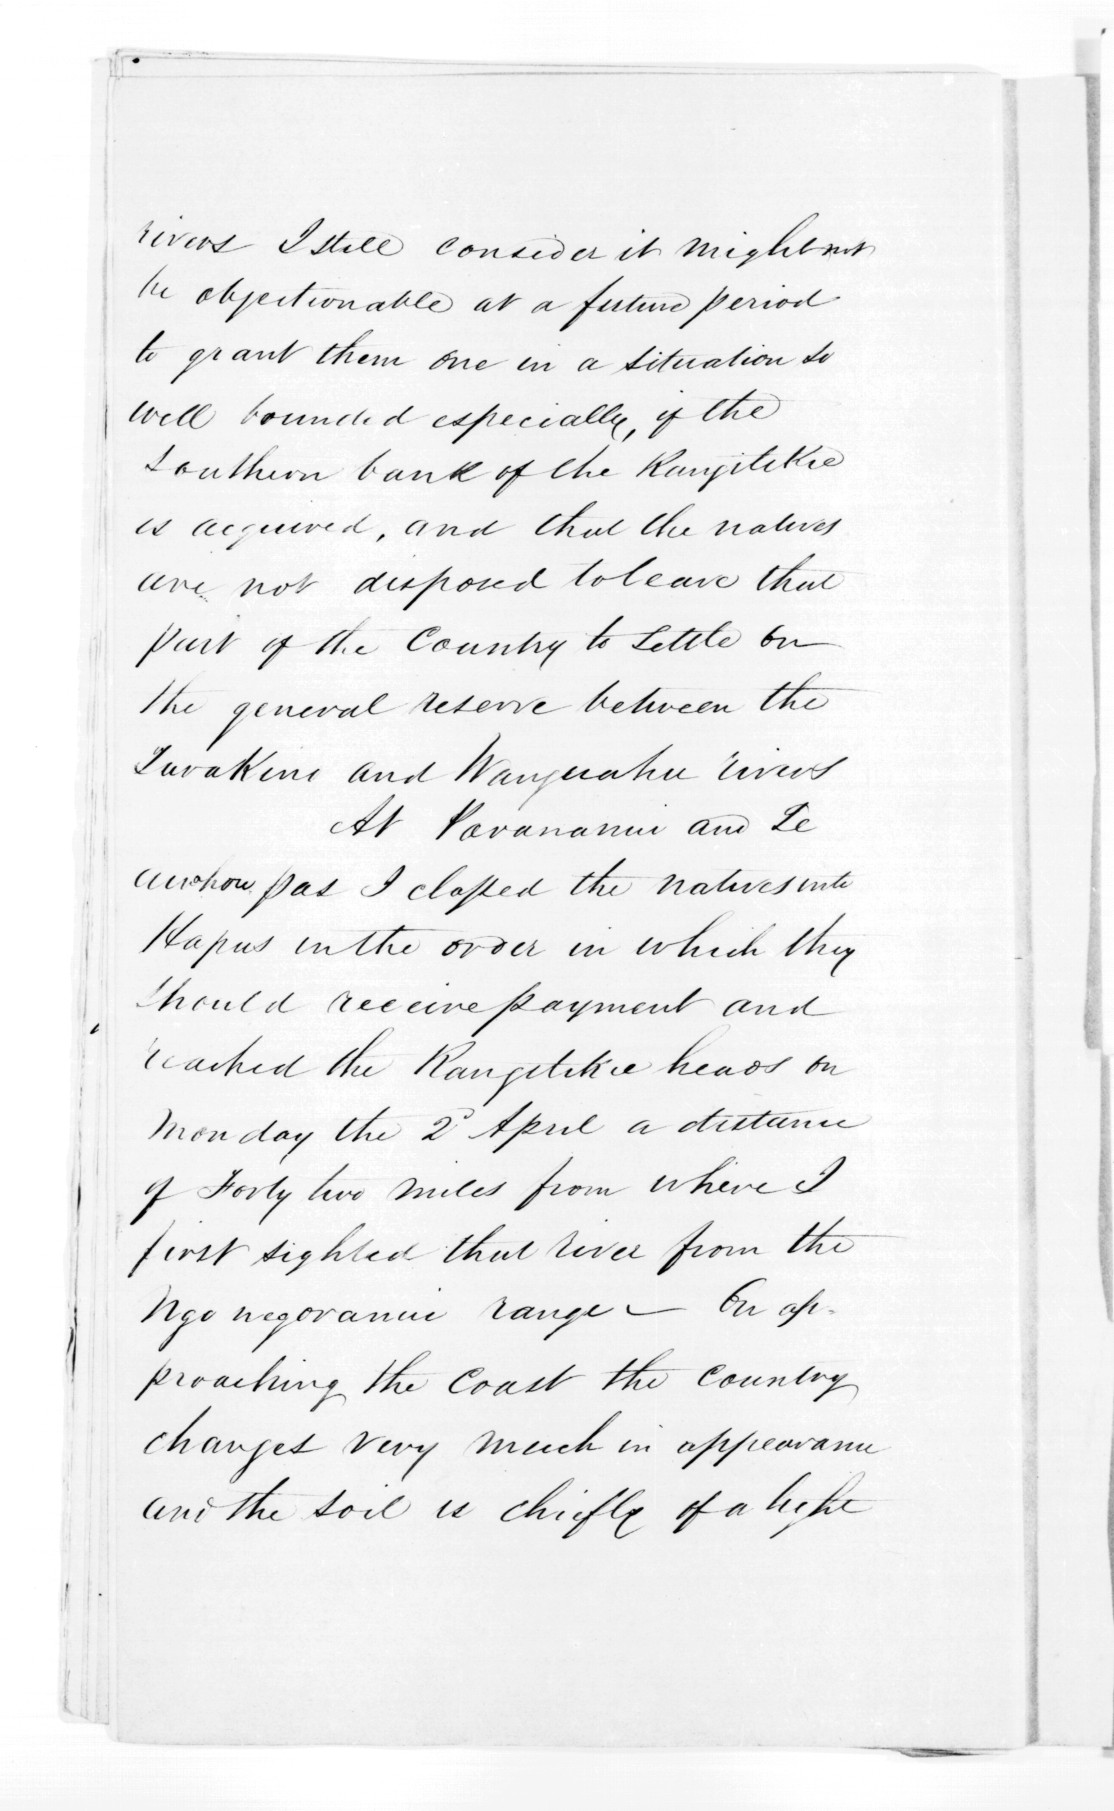 rivers I still consider it might not
be objectionable at a future period
to grant them one in a situation so
well bounded especially, if the
Southern bank of the Rangitikie
is acquired, and that the natives
are not disposed to leave that
part of the Country to Settle on
the general reserve between the
Turakina and Wanguahu rivers
At Parananui and Te
awahou pas I classed the natives into
Hapus in the order in which they
should receive payment and
reached the Rangitikie heads on
Monday the 2d April a distance
of Forty two miles from where I
first sighted that river from the
range — On ap-
proaching the Coast the Country
changes very much in appearance
and the soil is chiefly of a light